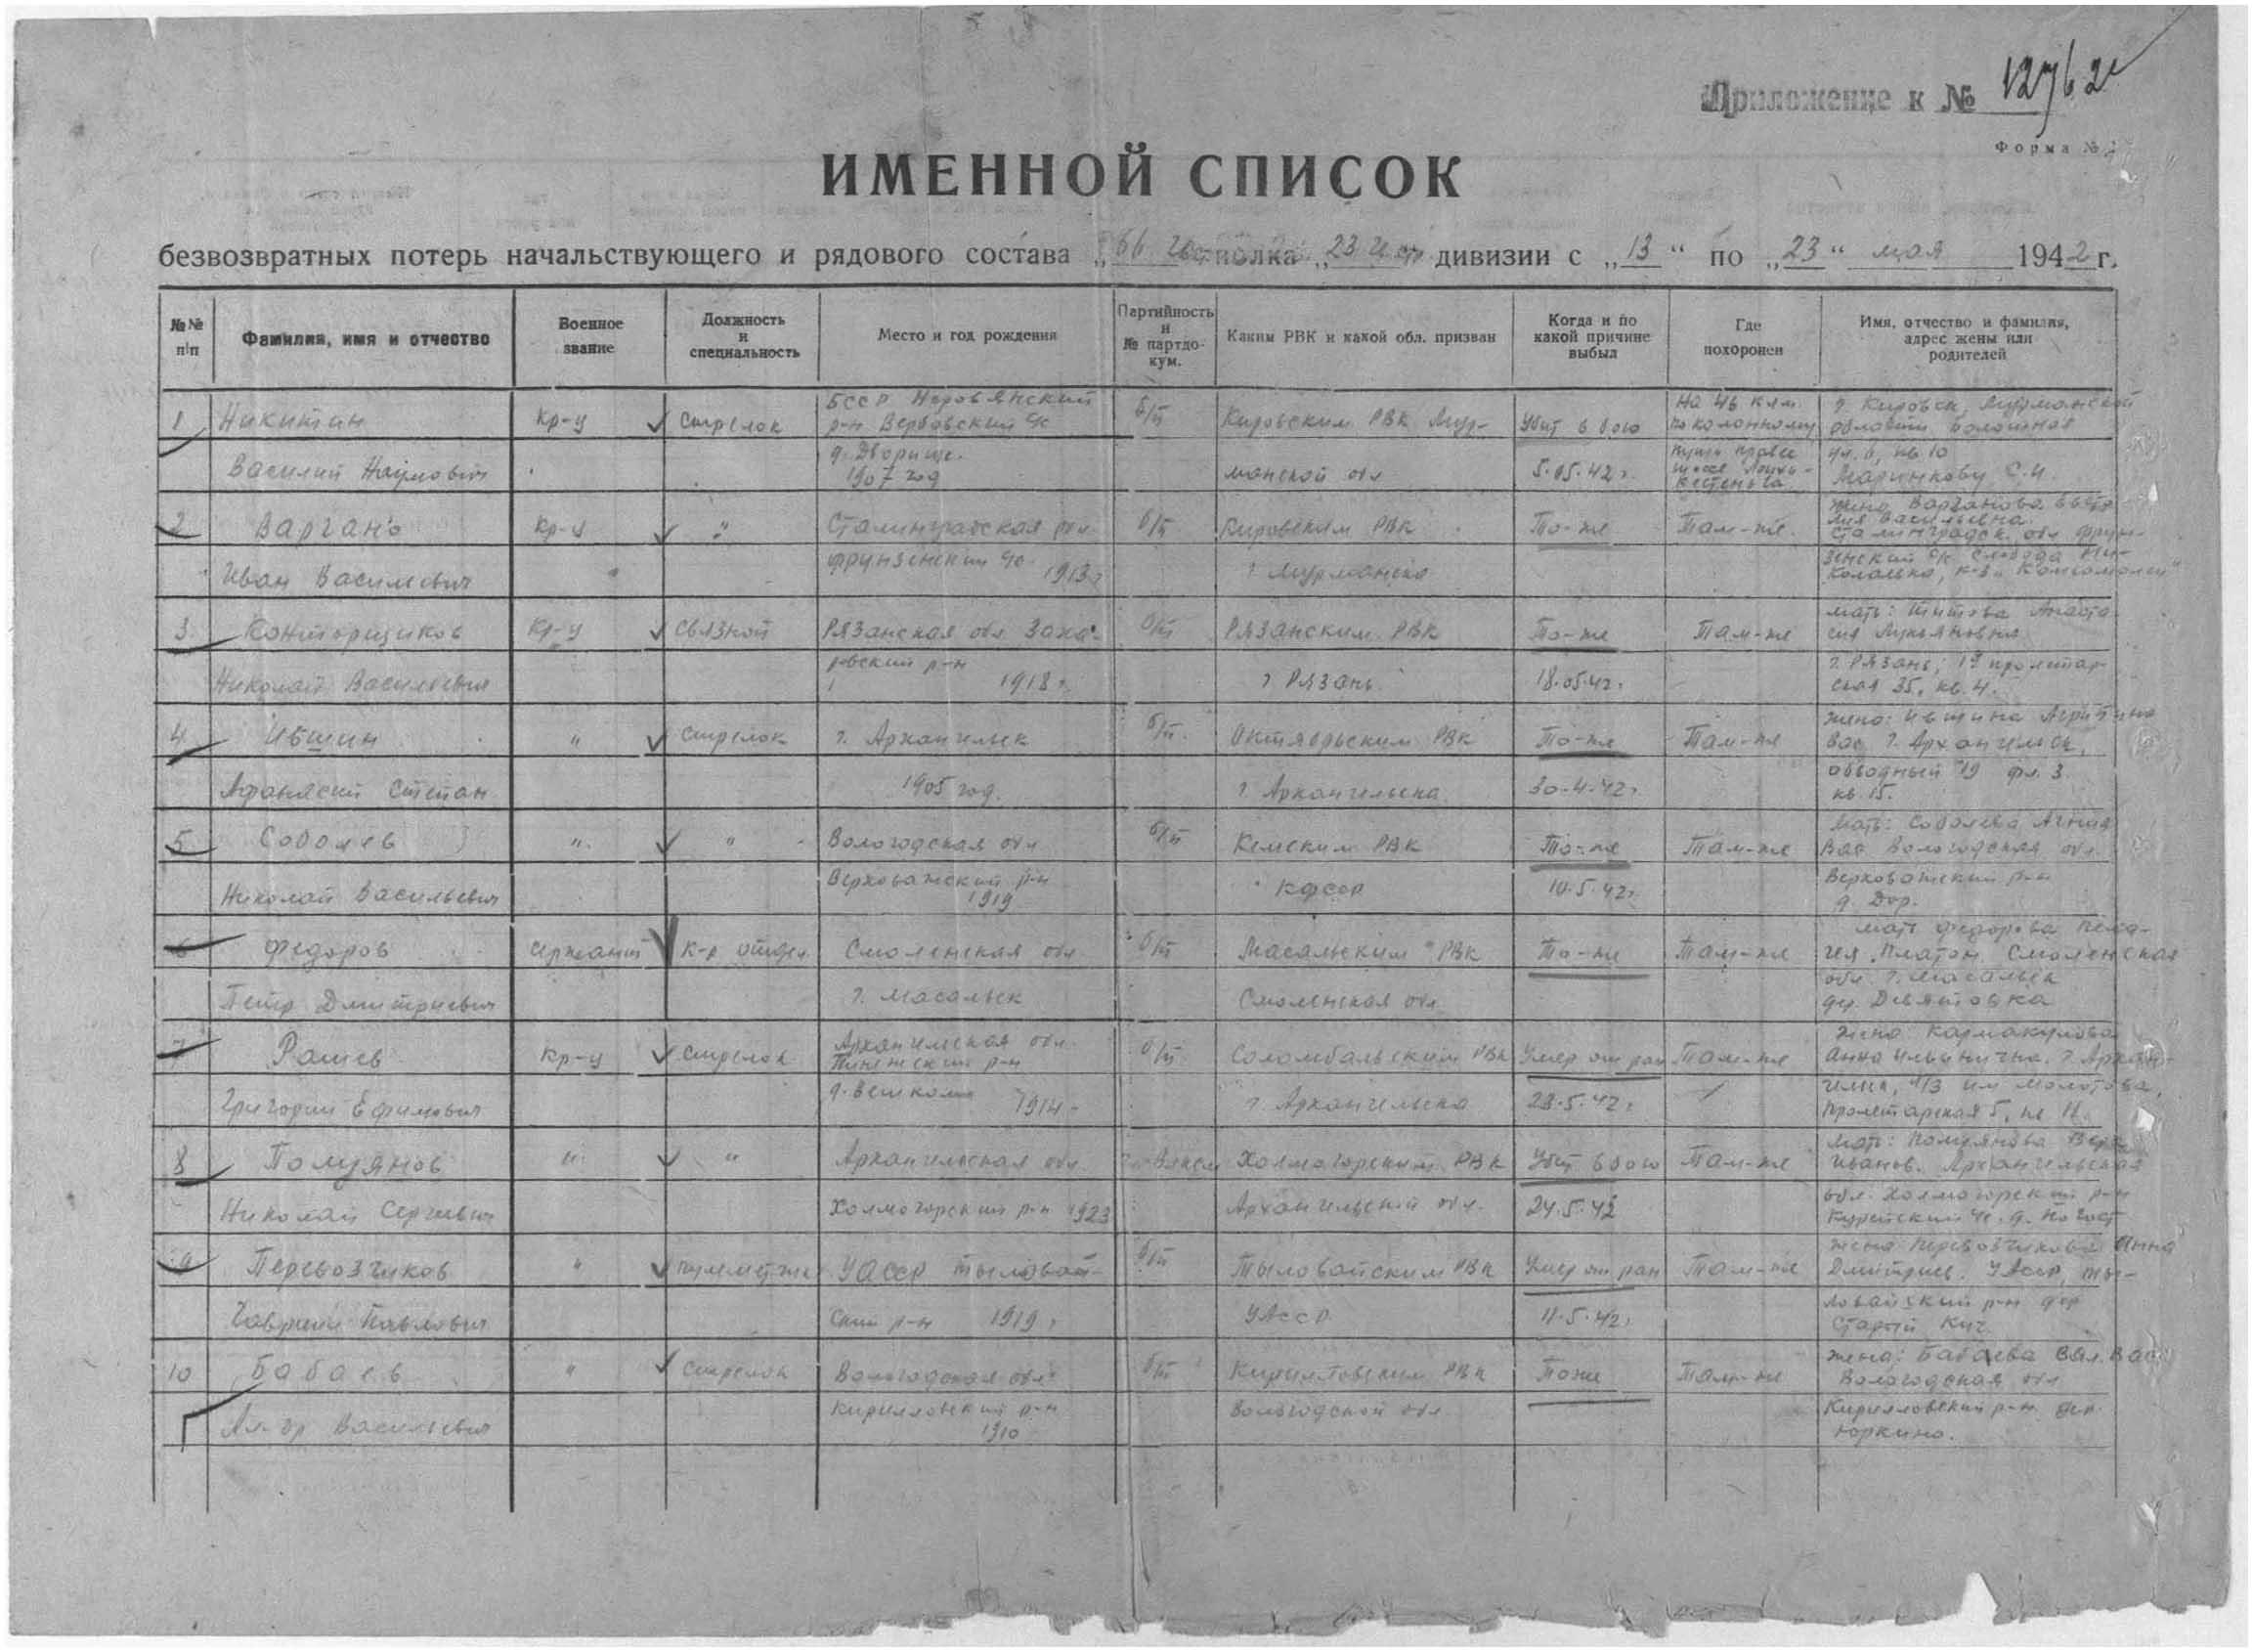 Приложение к № 12762
Форма № 2
ИМЕННОЙ СПИСОК
безвозвратных потерь начальствующего и рядового состава „66 полка „23 дивизии с „13“ по „23“ мая 1942 г.
№№ п/п
Фамилия, имя и отчество
Военное звание
Должность и специальность
Место и год рождения
Партийность и № партдокум.
Каким РВК и какой обл. призван
Когда и по какой причине выбыл
Где похоронен
Имя, отчество и фамилия, адрес жены или родителей
1 Никитин Кр-ц Стрелок БССР Наровлянский р-н Вербовский с/с б/п Кировским РВК Мур- Убит в бою На 46 клм. по колонному г. Кировск, Мурманской области
Василий Наумович д. Дворище. 1907 год манской обл 5.05.42 г. пути правее шоссе Лоухи-Кестеньга ул. 6, кв 10 Маринкову С.И.
2 Варган Кр-ц " Сталинградская обл б/п Кировским РВК То-же Там-же. Жена Варганова Васильевна Сталинградск. обл Фрун-
Иван Василевич Фрунзенский 1913 г г. Мурманска зенский слобода Ни- к-з "Комсомолец"
3. Конторщиков Кр-ц Связной Рязанская обл Заха- б/п Рязанским РВК То-же Там-же мать: Титова Анаста- сия Лукьяновна
Николай Васильевич ровский р-н 1918 г. г Рязань 18.05.42 г. г. Рязань, пролетар- ская 35, кв. 4.
4 Ившин " Стрелок г. Архангельск б/п. Октябрьским РВК То-же Там-же жена: Ившина Вас. г. Архангельск,
Афанасий Степан 1905 год. г. Архангельска 30-4-42 г. обводный 19 фл. 3. кв. 15.
5 Соболев " " Вологодская обл б/п Кемским РВК То-же Там-же Мать: Соболева Вас Вологодская обл.
Николай Васильевич Верховажский р-н 1919 КФССР 10.5.42 г. Верховажский р-н д. Дор.
6 Федоров сержант к-р отдел. Смоленская обл б/п Масальским РВК То-же Там-же мать Федорова Пела- гея Платон. Смоленская
Петр Дмитриевич г. Масальск Смоленская обл обл г. Масальск дер. Девятовка
7 Рашев Кр-ц Стрелок Архангельская обл. Пинежский р-н б/п Соломбальским РВК Умер от ран Там-же жена Кармакулова Анна Ильинична. г. Архан-
Григорий Ефимович 1914 г. Архангельска 28.5.42 г. гельск, л/з им Молотова, Пролетарская 5, кв 11.
8 Полуянов " " Архангельская обл Влксм Холмогорским РВК Убит в бою Там-же мать: Полуянова Вера Иванов. Архангельская
Николай Сергеевич Холмогорский р-н 1923 Архангельской обл. 24.5.42 обл. Холмогорский р-н Курейский с/с. д. Погост
9 Перевозчиков " пулеметчик УАССР Тыловай- б/п Тыловайским РВК Умер от ран Там-же жена Перевозчикова Анна Дмитриев. УАССР, Ты-
Гаврил Павлович ский р-н 1919 г УАССР 11.5.42 г. ловайский р-н дер Старый Кич
10 Бабаев " Стрелок Вологодская обл. б/п Кирилловским РВК Тоже Там-же жена: Бабаева Вал. Вас Вологодская обл
Ал-др Васильевич Кирилловский р-н 1910 Вологодской обл Кирилловский р-н. дер. Юркино.